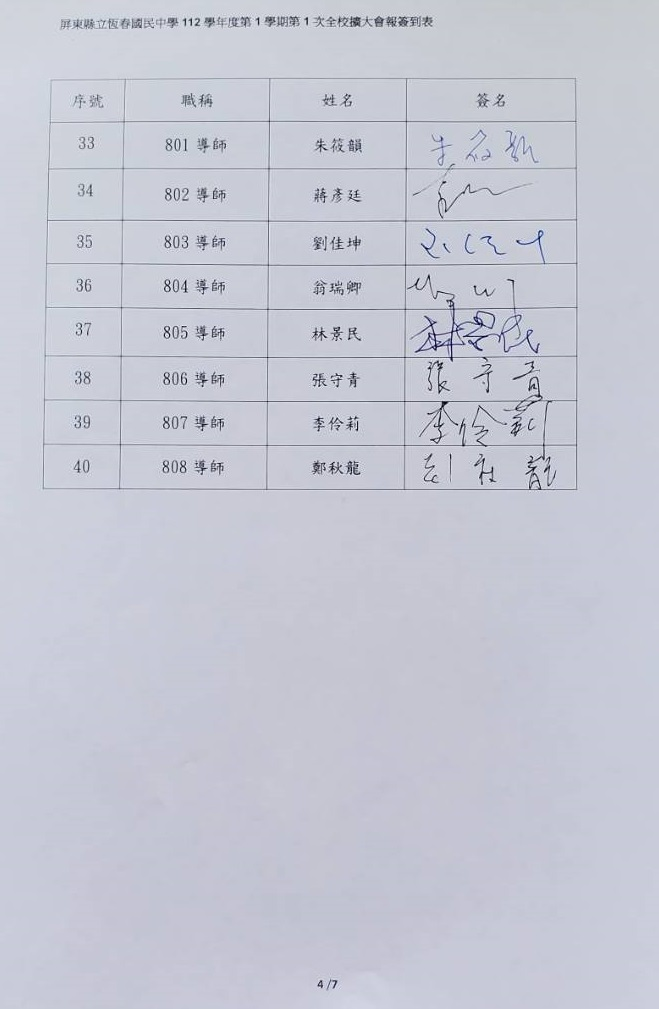 屏東縣立恆春國民中學 112 學年度第 1 學期第 1 次全校擴大會報簽到表
序號 職稱 姓名 簽名
33 801 導師 朱筱韻 朱筱韻
34 802 導師 蔣彥廷
35 803 導師 劉佳坤
36 804 導師 翁瑞卿
37 805 導師 林景民 林景民
38 806 導師 張守青 張守青
39 807 導師 李伶莉 李伶莉
40 808 導師 鄭秋龍
4 /7